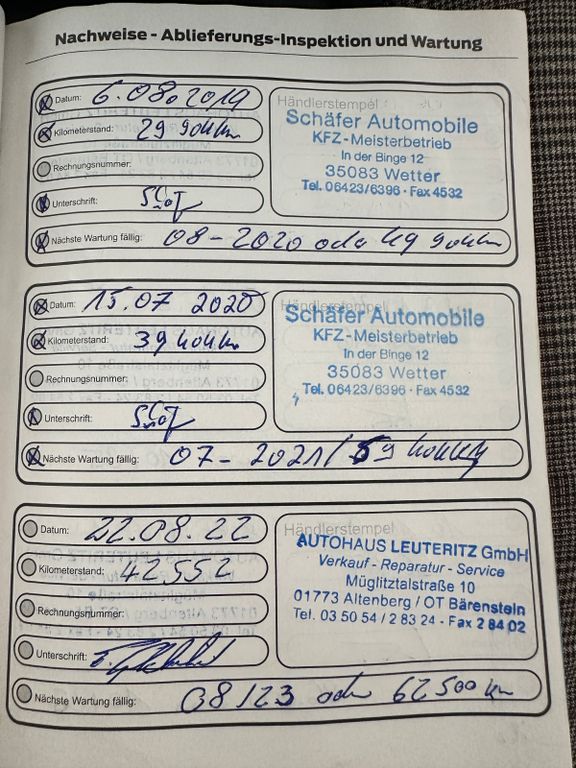 Nachweise - Ablieferungs-Inspektion und Wartung
Datum: 6.08.2019
Kilometerstand: 29 904 km
Rechnungsnummer:
Unterschrift:
Nächste Wartung fällig: 08-2020 oder 49 904 km
Händlerstempel
Schäfer Automobile
KFZ-Meisterbetrieb
In der Binge 12
35083 Wetter
Tel. 06423/6396 · Fax 4532
Datum: 15.07 2020
Kilometerstand: 39 404 km
Rechnungsnummer:
Unterschrift:
Nächste Wartung fällig: 07-2021/59 404 km
Händlerstempel
Schäfer Automobile
KFZ-Meisterbetrieb
In der Binge 12
35083 Wetter
Tel. 06423/6396 · Fax 4532
Datum: 22.08.22
Kilometerstand: 42552
Rechnungsnummer:
Unterschrift:
Nächste Wartung fällig: 08/23 oder 62500 km
Händlerstempel
AUTOHAUS LEUTERITZ GmbH
Verkauf - Reparatur - Service
Müglitztalstraße 10
01773 Altenberg / OT Bärenstein
Tel. 03 50 54 / 2 83 24 - Fax 2 84 02